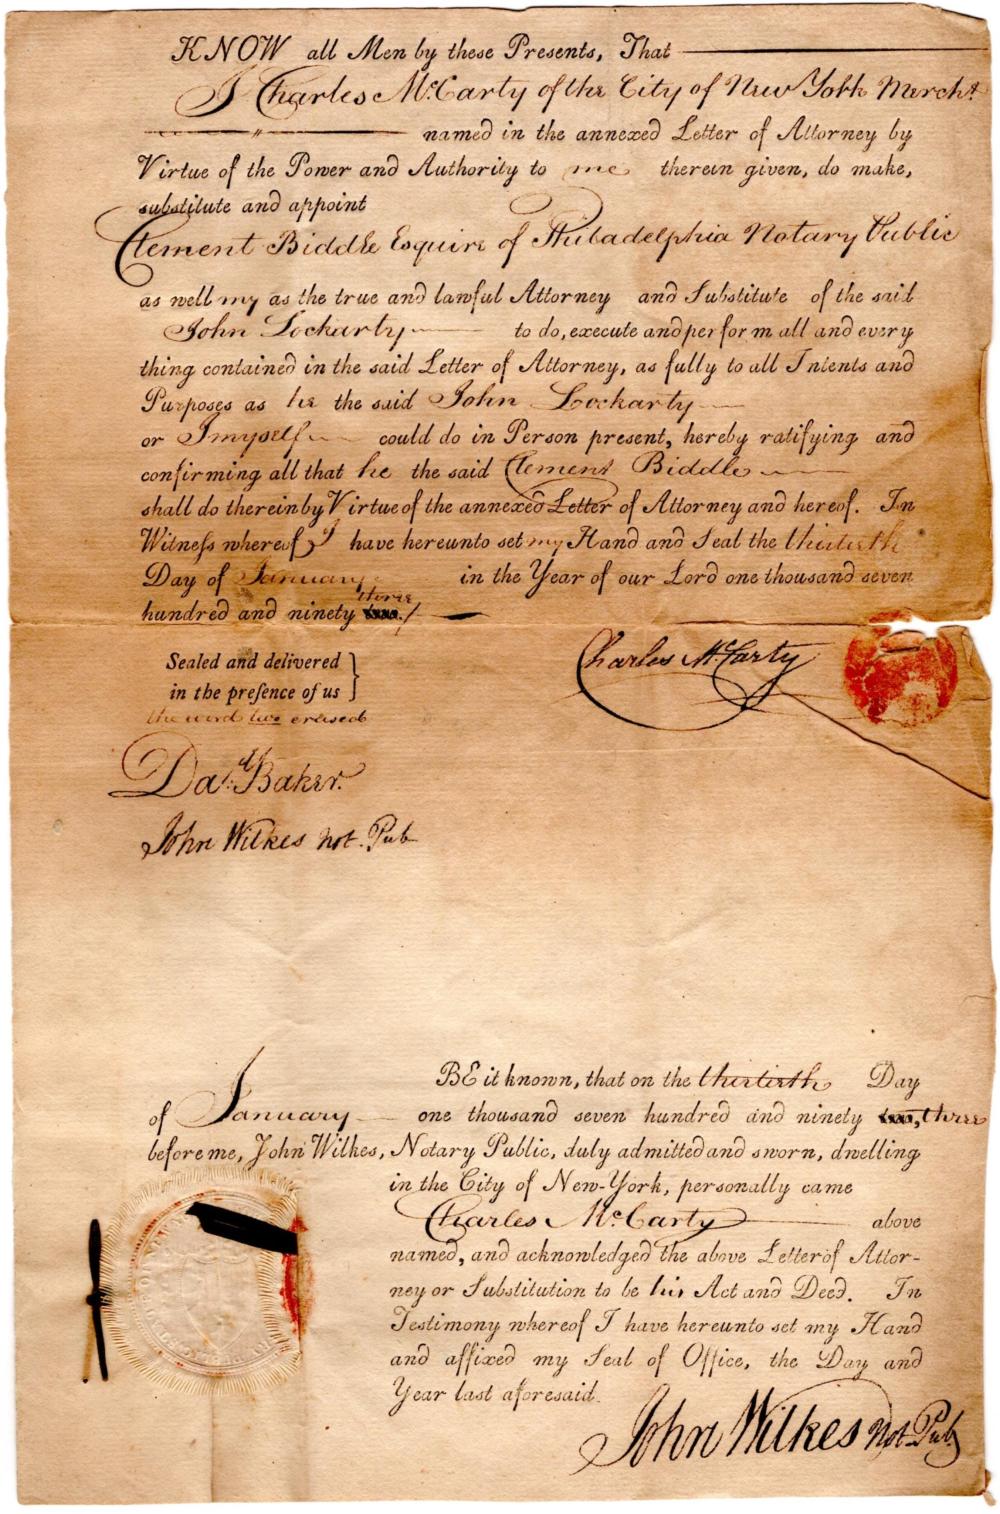 KNOW all Men by these Presents, That
I Charles McCarty of the City of New York Mercht
named in the annexed Letter of Attorney by
Virtue of the Power and Authority to me therein given, do make,
substitute and appoint
Clement Biddle Esquire of Philadelphia Notary Public
as well my as the true and lawful Attorney and Substitute of the said
John Lockarty to do, execute and perform all and every
thing contained in the said Letter of Attorney, as fully to all Intents and
Purposes as he the said John Lockarty
or I myself could do in Person present, hereby ratifying and
confirming all that he the said Clement Biddle
shall do therein by Virtue of the annexed Letter of Attorney and hereof. In
Witneſs whereof I have hereunto set my Hand and Seal the thirtieth
Day of January in the Year of our Lord one thousand seven
three
hundred and ninety two./
Charles McCarty
Sealed and delivered
in the preſence of us
the word two erased
Da. Baker.
John Wilkes Not. Pub
BE it known, that on the thirtieth Day
of January one thousand seven hundred and ninety two, three
before me, John Wilkes, Notary Public, duly admitted and sworn, dwelling
in the City of New-York, personally came
Charles McCarty above
named, and acknowledged the above Letter of Attor-
ney or Substitution to be his Act and Deed. In
Testimony whereof I have hereunto set my Hand
and affixed my Seal of Office, the Day and
Year last aforesaid.
John Wilkes Not. Pub